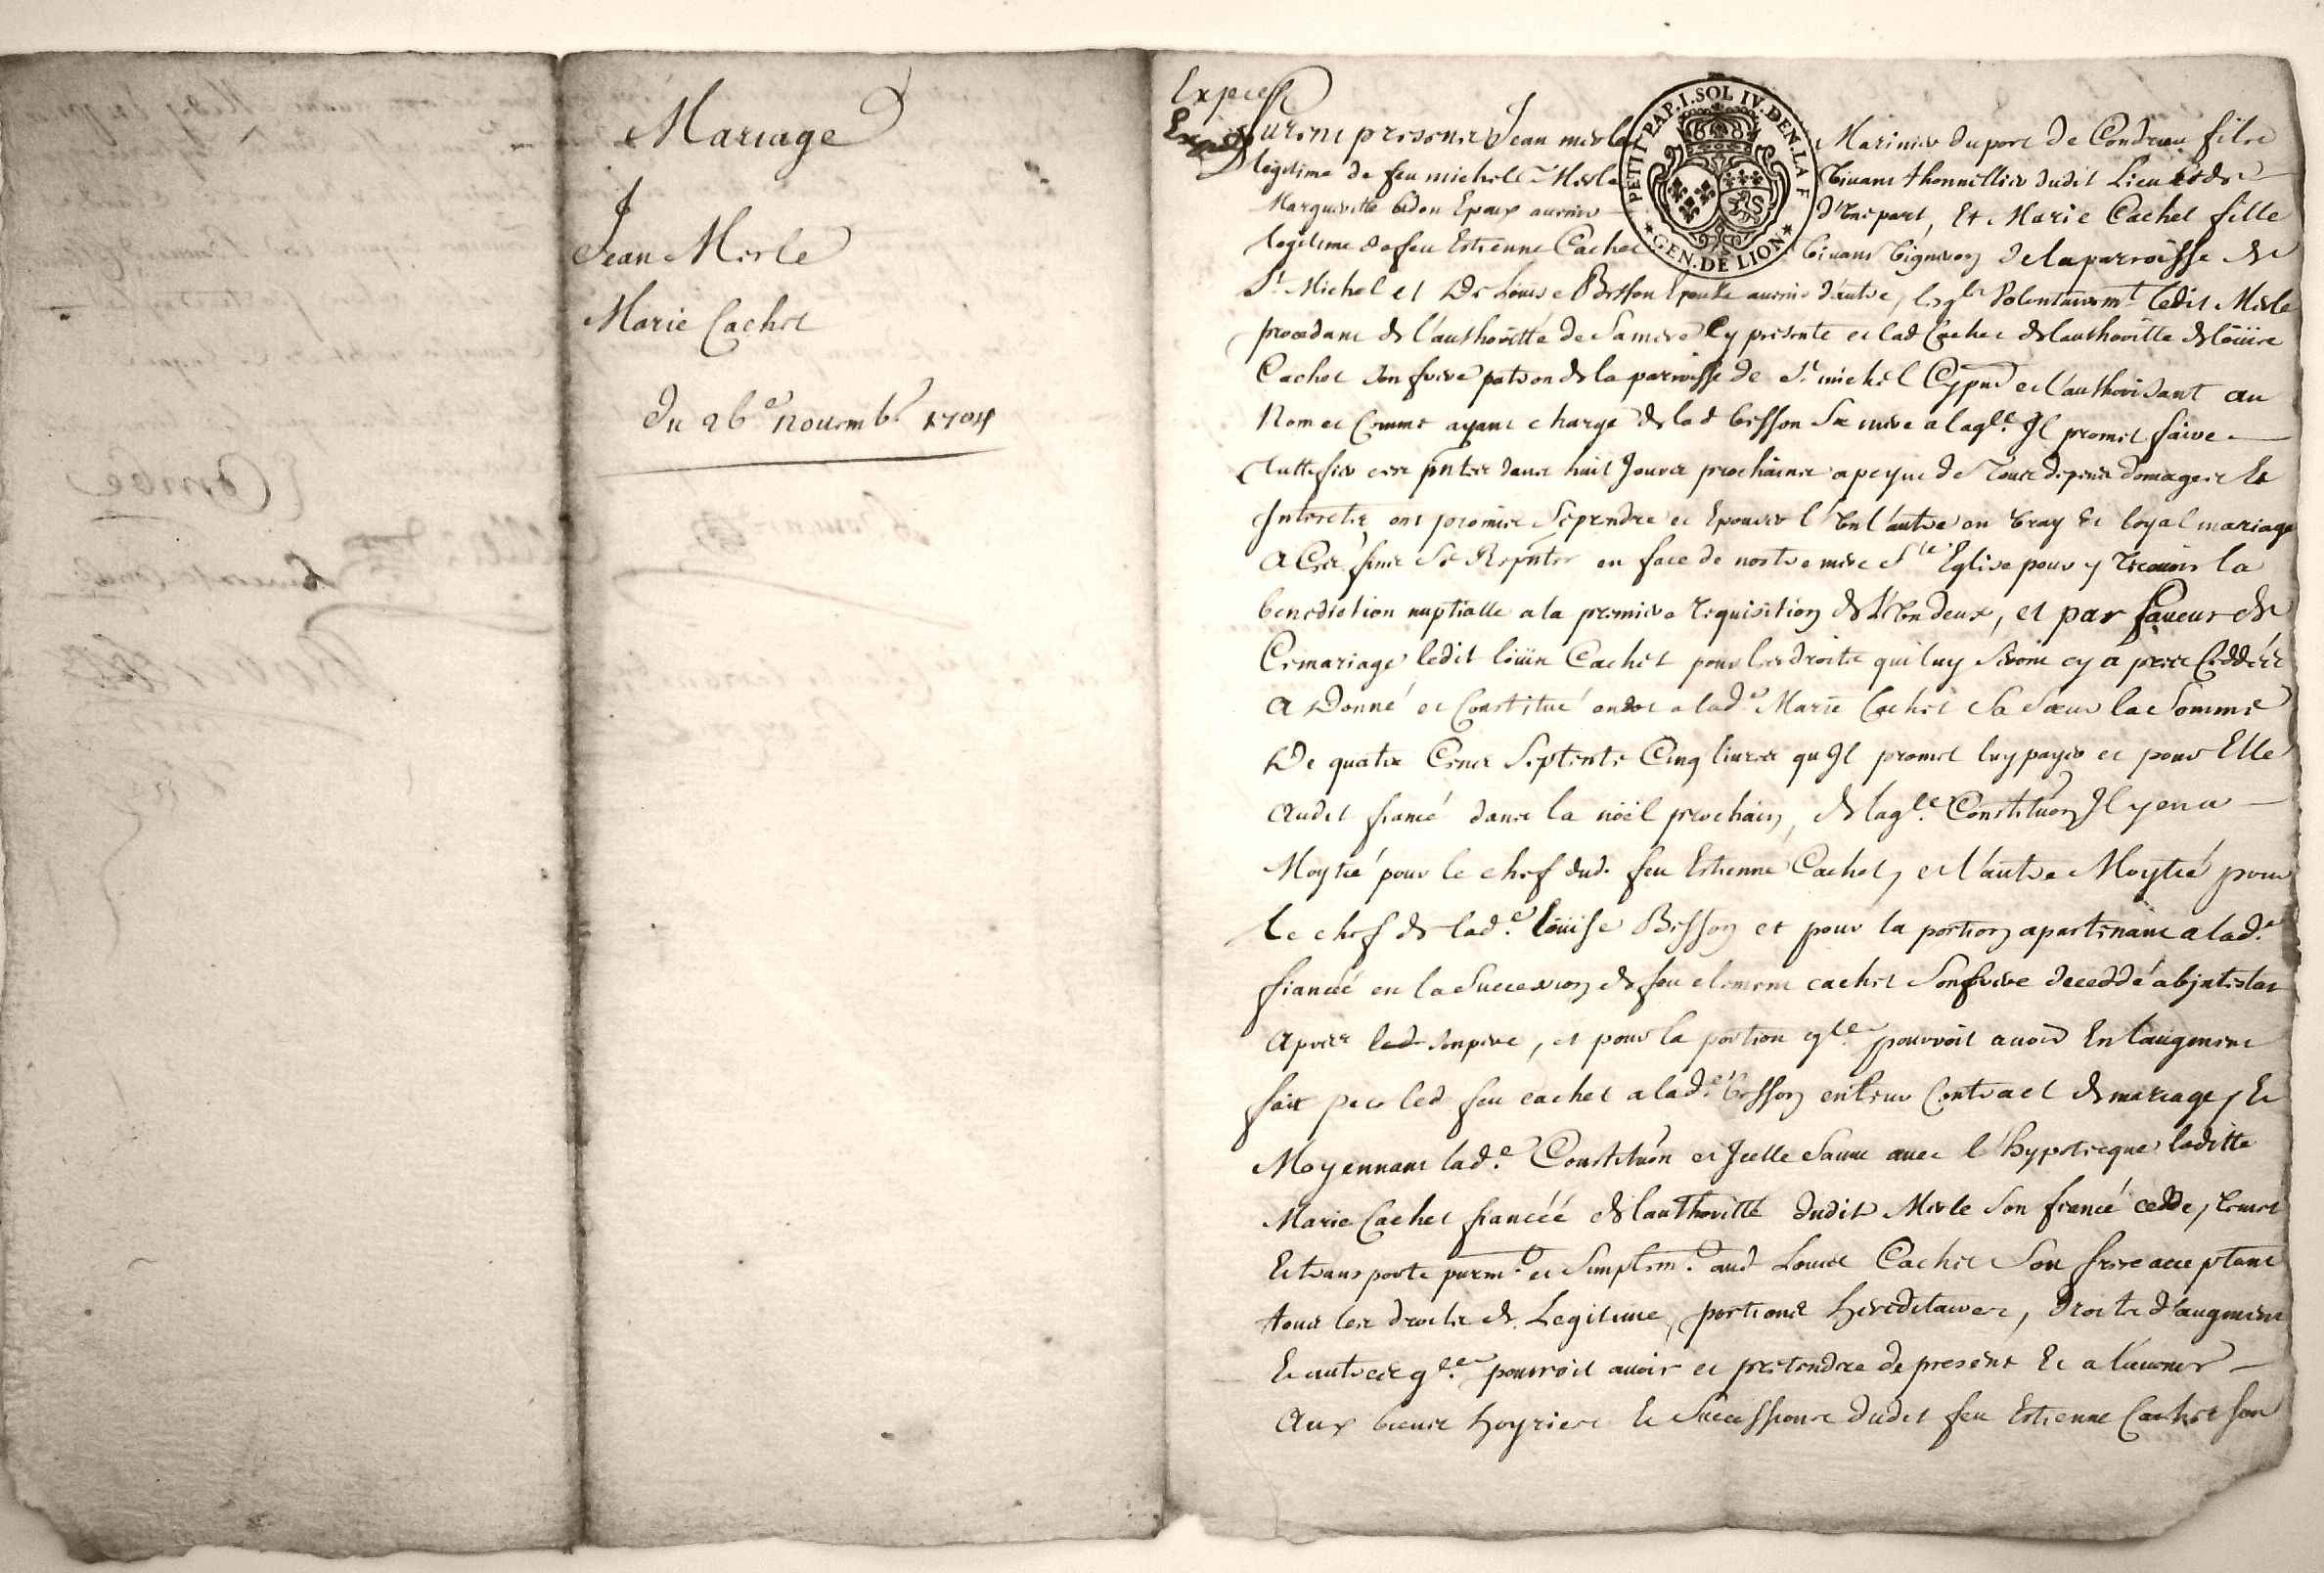 Mariage
Jean Merle
Marie Cachet
Du 26e novemb. 1704
Expedié
PETIT. PAP. I. SOL IV. DEN. LA F
GEN. DE LION
Furent presens Jean merle Marinier du port de Condrieu fils
legitime de feu michel Merle vivant thonnellier dudit Lieu et de
Marguerite bidon Epoux auviv d'une part, Et Marie Cachet fille
legitime de feu Estienne Cachet vivant vigneron de la parroisse de
St Michel et De Louise Besson Epouse d'autre, lesqls volontairemt ledit Merle
procedant de l'authoritté de sa mere Cy presente et lad Cachet de lauthoritte de loüis
Cachet son frere patron de la parroisse de St michel Cy pnt et l'authorisant au
Nom et Comme ayant charge de lad besson sa mere a laqle Il promet faire
ces pntes dans huit Jours prochains a peyne de tous depens domages Et
Interets ont promis se prendre et Epouser l'un l'autre en vray et loyal mariage
A Ces fins se Repnter en face de nostre mere Ste Eglise pour y recevoir la
benediction nuptialle a la premiere requisition de l'un deux, et par faveur de
Ce mariage ledit loüis Cachet pour les droits qui luy seront cy apres Ceddés
A Donné et Constitué en dot a lade Marie Cachet sa sœur la somme
De quatre Cens septente Cinq livres qu'Il promet luy payer et pour Elle
audit fiancé dans la nöel prochain, de laqle Constituon Il y en a
Moytié pour le chef dud. feu Estienne Cachet, et l'autre Moytié pour
le chef de lade. loüise Besson et pour la portion apartenant a lade.
fiancéé en la succession de feu clement cachet son frere deceddé abjntestat
apres led son pere, et pour la portion qle pourroit avoir En l'augment
fait par led feu cachet a lade. besson en leur Contract de mariage, Et
Moyennant lade. Constituon et Jcelle sauve avec l'hypotecque laditte
Marie Cachet fiancéé de lauthoritté dudit Merle son fiancé cedde, remet
Et transporte puremt. et simplemt. aud Louis Cachet son frere acceptant
tous les droits de Legitime, portions hereditaires, droits d'augment
Et autres qle pourroit avoir et pretendre de present Et a l'avenir
Aux biens hoyries Et successions dudit feu Estienne Cachet son